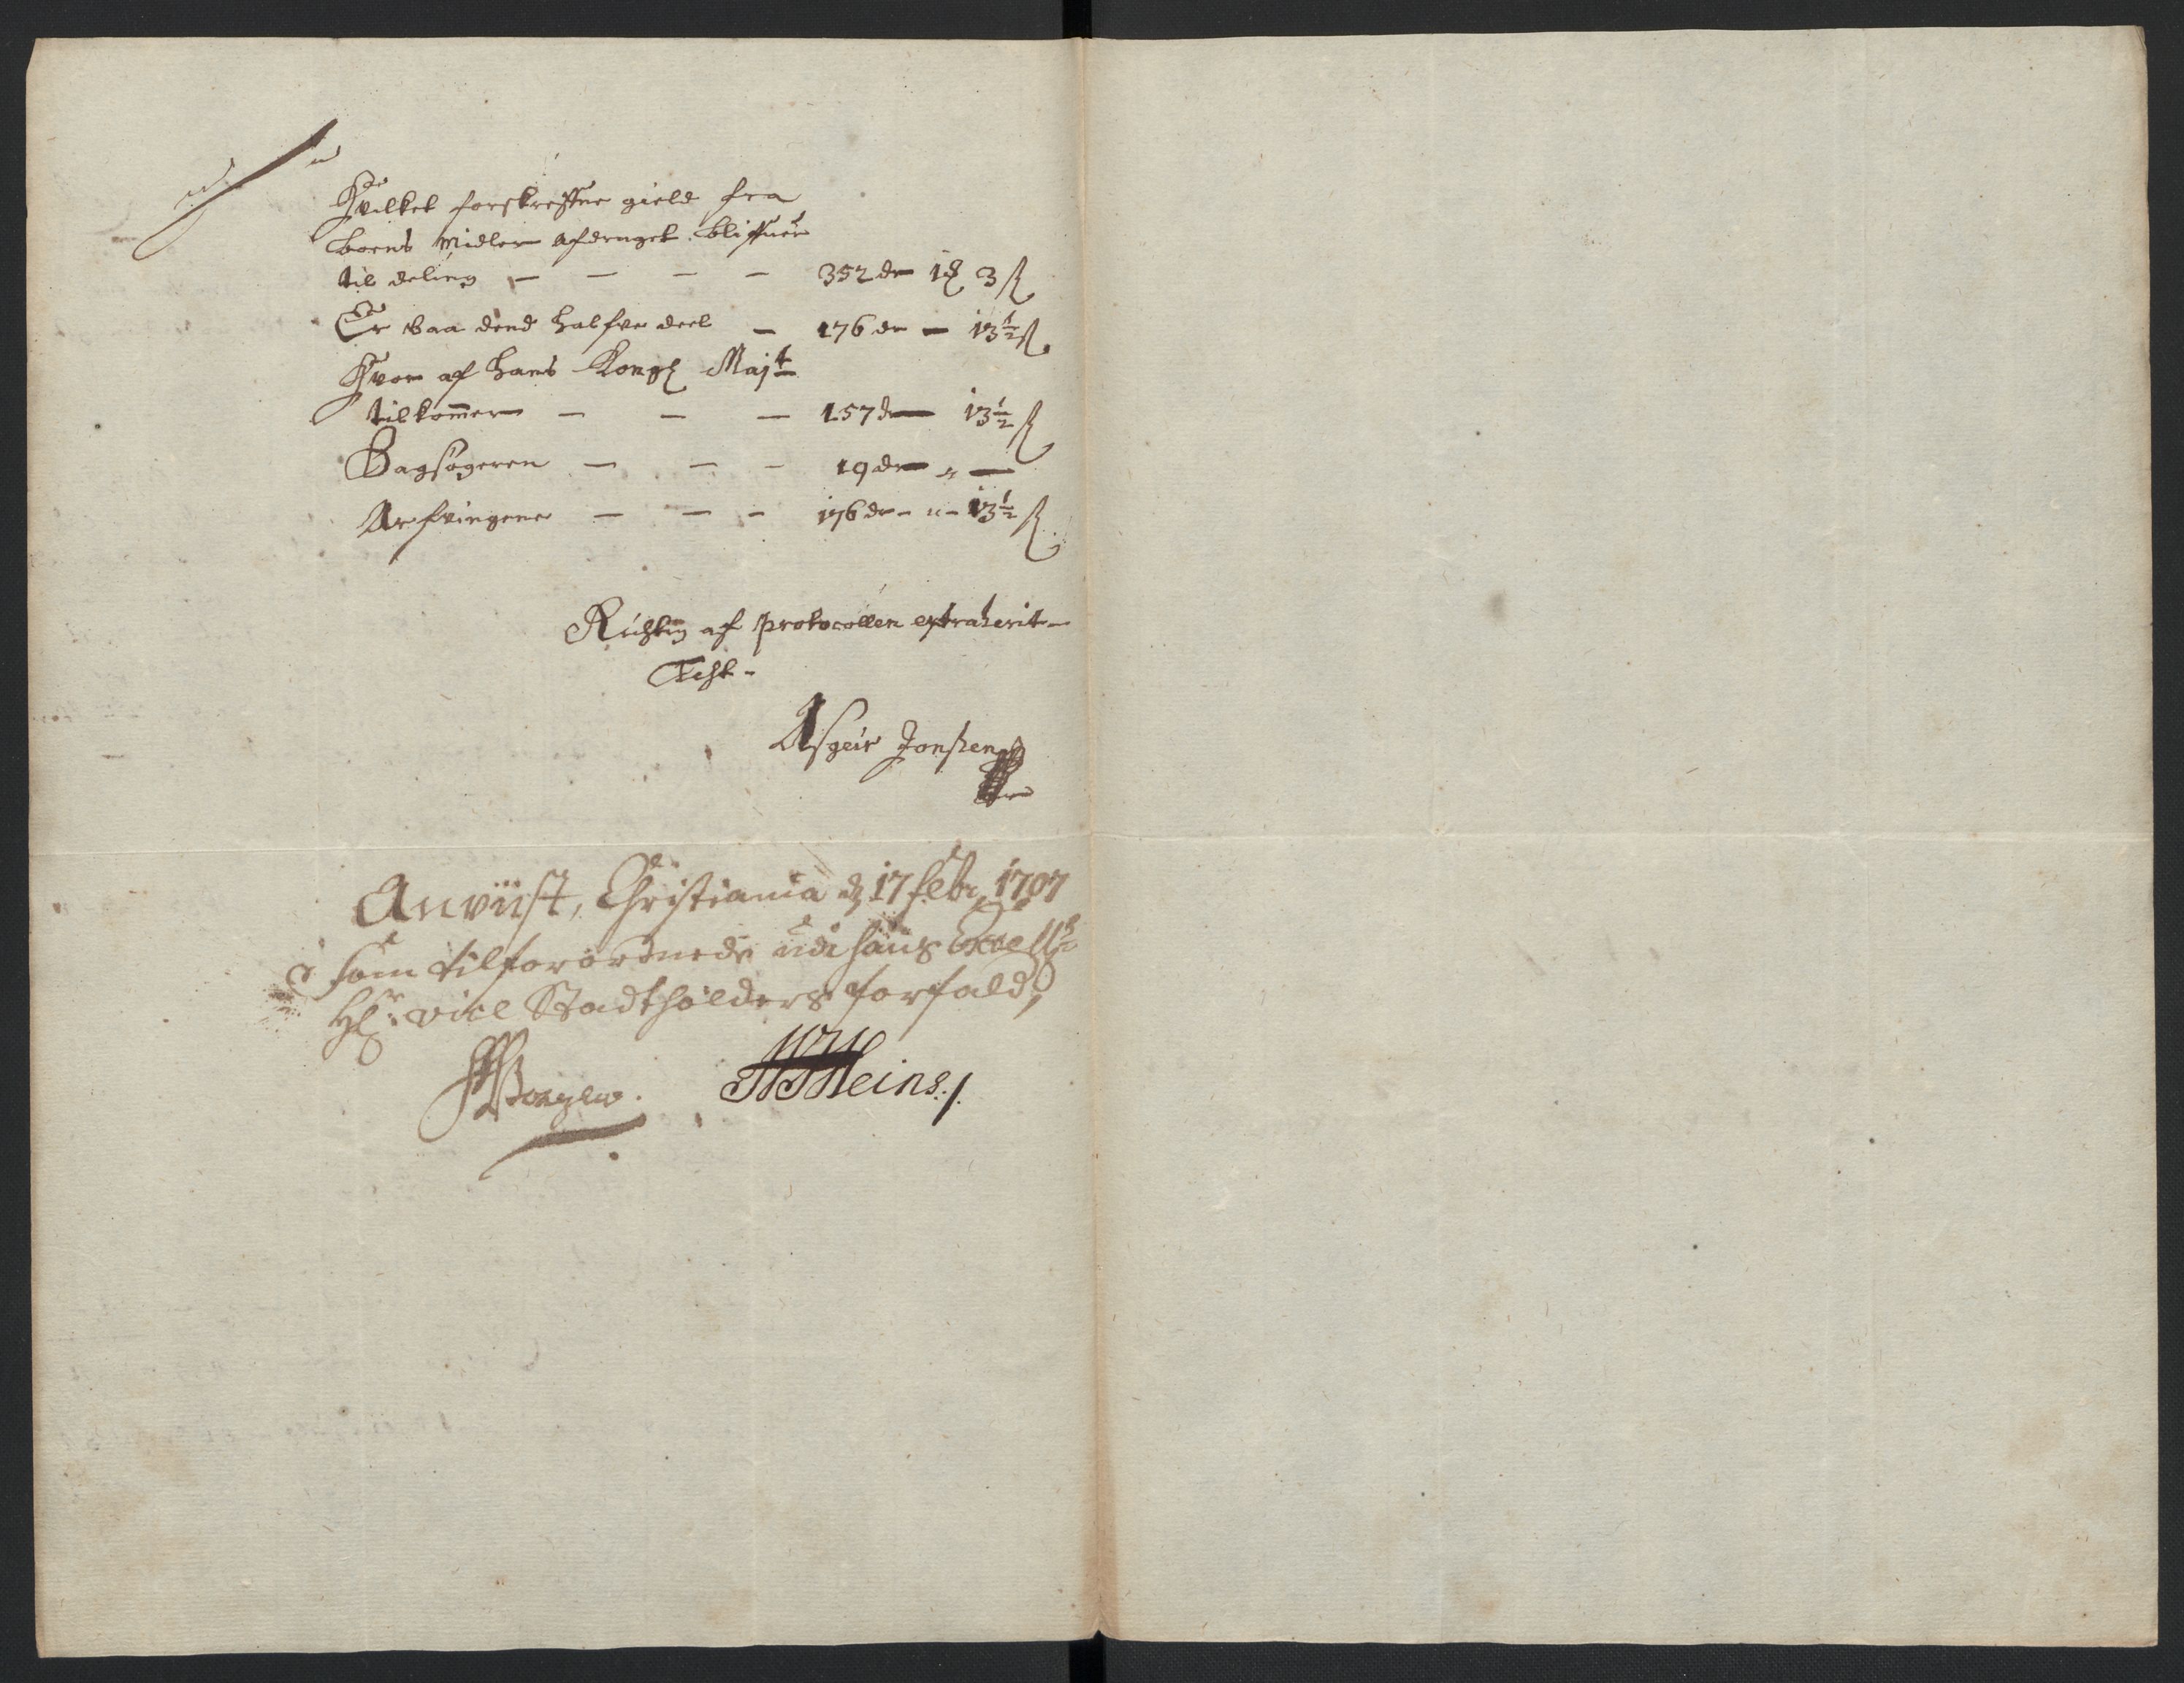 Hvilket forskrefne gield fra
boens Midler afdraget. blifuer
til deling — — — — 352 dr 1 ꝶ 3 ß
Er baa dend halfve deel — 176 dr — 13½ ß.
Hvor af hans Kongl Majt
tilkommer — — — 157 dr — 13½ ß
Bagsögeren — — — 19 dr „ —
Arfvingene — — — 176 dr - „ - 13½ ß
Richtig af protocollen extraherit
Test -
Asgeir Jonsen
Anviist, Christiania d 17 febr 1707
som tilforordnede udi hans Excellce
Hr: vice Stadtholders forfald,
HHeins./.